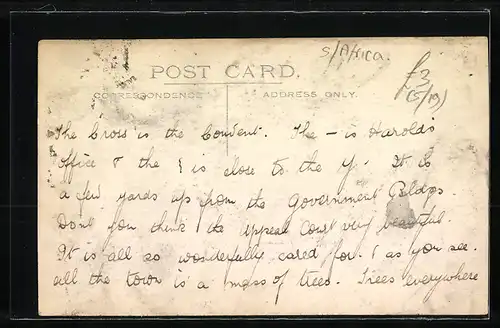 S/Africa.
£3
(5/19)
POST CARD.
CORRESPONDENCE
ADDRESS ONLY.
The Cross is the Convent. The — is Harold's
Office & the is close to the y. It is
a few yards up from the Government Bldgs.
Don't you think the Appeal Court very beautiful.
It is all so wonderfully cared for. & as you see.
all the town is a mass of trees. Trees everywhere